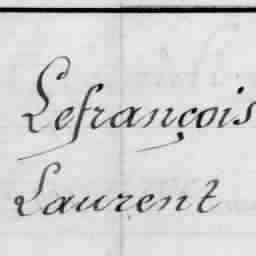 Lefrançois
Laurent